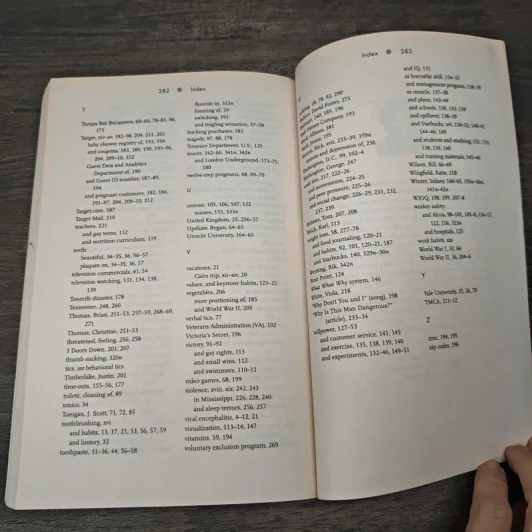 382 Index
T
Tampa Bay Buccaneers, 60–66, 78–85, 86,
175
Target, xiv–xv, 182–98, 204, 211, 261
baby shower registry of, 193, 194
and coupons, 183, 189, 190, 193–96,
204, 209–10, 212
Guest Data and Analytics
Department of, 190
and Guest ID numbers, 187–89,
194
and pregnant customers, 182, 184,
191–97, 204, 209–10, 212
Target.com, 187
Target Mail, 210
teachers, 221
and gay teens, 112
and nutrition curriculum, 119
teeth:
beautiful, 34–35, 36, 56–57
plaques on, 34–35, 36, 57
television commercials, 41, 54
television watching, 131, 134, 138,
139
Tenerife disaster, 178
Tennessee, 248, 260
Thomas, Brian, 251–53, 257–59, 268–69,
271
Thomas, Christine, 251–53
threatened, feeling, 256, 258
3 Doors Down, 201, 207
thumb sucking, 320n
tics,
Timberlake, Justin, 201
time-outs, 155–56, 177
toilets, cleaning of, 89
tonics, 34
Tonigan, J. Scott, 71, 72, 85
toothbrushing, xvi
and habits, 13, 17, 21, 33, 56, 57, 59
and history, 32
toothpaste, 31–36, 44, 56–58
fluoride in, 323n
foaming of, 59
switching, 191
and tingling sensation, 57–58
tracking purchases, 183
tragedy, 87, 88, 178
Treasury Department, U.S., 125
truces, 162–66, 341n, 342n
and London Underground, 173–75,
180
twelve-step programs, 68, 69–70
U
unions, 105, 106, 107, 122
nurses, 155, 333n
United Kingdom, 25, 256–57
Updilate, Regan, 64–65
Utrecht University, 164–65
V
vacations, 21
Cairo trip, xii–xiv, 20
values, and keystone habits, 123–25
vegetables, 206
store positioning of, 185
and World War II, 205
verbal tics, 77
Veterans Administration (VA), 102
Victoria's Secret, 196
victory, 91–92
and gay rights, 113
and small wins, 112
and swimmers, 110–11
video games, 68, 199
violence, xviii, xix, 242, 243
in Mississippi, 226, 228, 240
and sleep terrors, 256, 257
viral encephalitis, 4–12, 21
visualization, 113–14, 147
vitamins, 59, 194
voluntary exclusion program, 269
Index 383
W
78, 82, 90
David Foster, 273
140, 185, 196
Company, 193
Allison, 185
195
Rick, xvii, 233–39, 359n
and depression of, 236
Washington, D.C., 99, 102–4
Washington, George, 247
217, 222–26
and movements, 224–25
and peer pressure, 225–26
and social change, 226–29, 231, 232,
237, 239
Tom, 207, 208
Karl, 113
weight loss, 38, 277–78
and food journaling, 120–21
and habits, 92, 101, 120–21, 187
and Starbucks, 140, 329n–30n
Rik, 342n
West Point, 124
What What Why system, 146
White, Viola, 218
"Why Don't You and I" (song), 198
"Why Is This Man Dangerous?"
(article), 233–34
willpower, 127–53
and customer service, 141, 145
and exercise, 135, 138, 139, 140
and experiments, 132–46, 149–51
and IQ, 131
as learnable skill, 134–35
and management program, 138–39
as muscle, 137–38
and plans, 142–44
and schools, 130, 133, 139
and spillover, 138–39
and Starbucks, xvi, 130–32, 140–41,
144–46, 149
and students and studying, 131, 133,
138, 139, 140
and training materials, 145–46
Wilson, Bill, 66–69
Wingfield, Katie, 218
WSOQ, 198, 199, 207–8
worker safety
and Alcoa,
122, 156, 325n
and hospitals, 125
work habits, xix
World War I, 32, 66
World War II, 36, 204–6
Y
Yale University, 25, 26, 70
YMCA, 211–12
Z
zinc, 194, 195
zip codes, 196